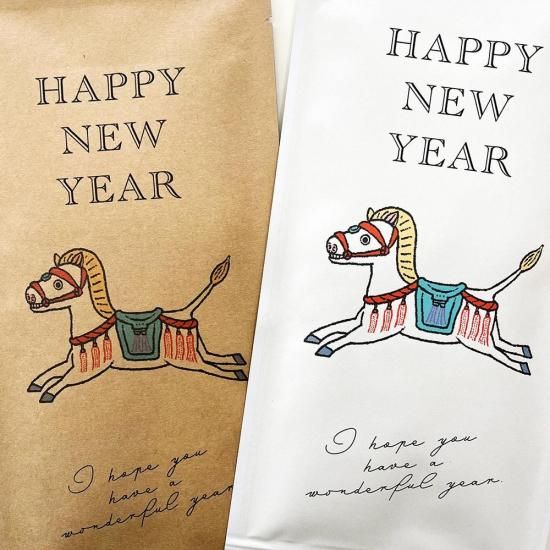 HAPPY
NEW
YEAR
I hope you
have a
wonderful year
HAPPY
NEW
YEAR
I hope you
have a
wonderful year.